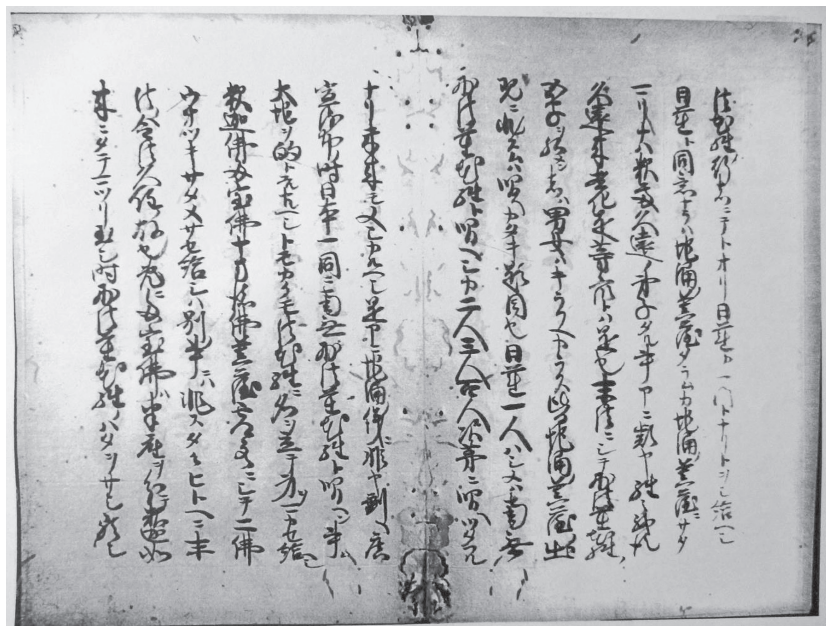 法花経行者ニテトオリ日蓮カ一門トナリトヲシ給ヘシ
日蓮ト同意ナラハ地涌菩薩タラムカ地涌菩薩ニサタ
マリナハ釈尊久遠ノ弟子タル事アニ疑ヤ経云我
久遠来教化是等衆トハ是也末法ニシテ妙法蓮華経
五字ヲ弘ム者ハ男女ハキラウヘカラス皆地涌菩薩出
現ニ非スムハ唱カタキ題目也日蓮一人ハシメハ南無
妙法蓮花経ト唱ヘシカ二人三人百人次第ニ唱ヘツタフル
ナリ未来モ又シカルヘシ是アニ地涌儀ニ非ヤ剰ヘ広
宣流布ノ時日本一同ニ南無妙法蓮花経ト唱ヘン事
大地ヲ的トスルナルヘシトモカクモ法花経ニ名ヲ立テ身ヲマカセ給ヘシ
釈迦佛多宝佛十方諸佛菩薩虚空ニシテ二佛
ウナツキサタメサセ給シハ別事ニハ非スタヽヒトヘニ末
法令法久住故也既ニ多宝佛半座ヲ分テ釈迦如
来ニタテマツリ玉シ時妙法蓮花経ノハタヲサシ顕シ